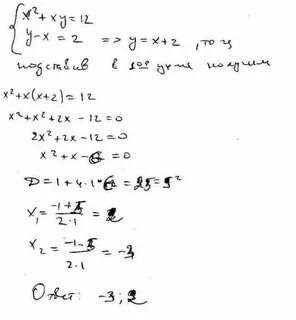 x² + xy = 12
y - x = 2 => y = x + 2, то
подставив в 1ое ур-ие получим
x² + x(x+2) = 12
x² + x² + 2x - 12 = 0
2x² + 2x - 12 = 0
x² + x - 6 = 0
D = 1 + 4·1·6 = 25 = 5²
x₁ = (-1+5)/(2·1) = 2
x₂ = (-1-5)/(2·1) = -3
Ответ: -3; 2